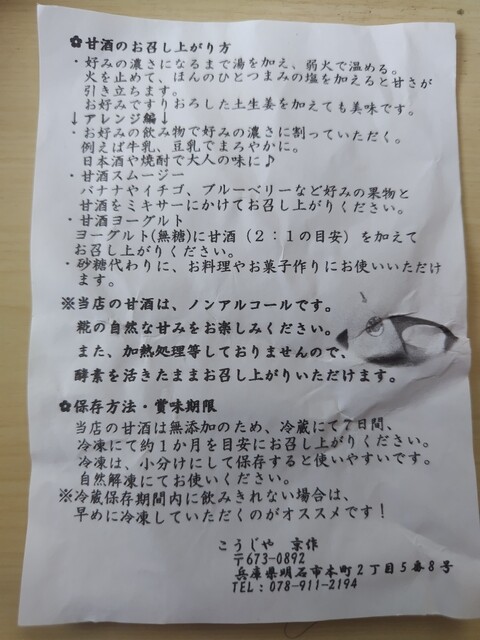 ✿甘酒のお召し上がり方
・好みの濃さになるまで湯を加え、弱火で温める。
火を止めて、ほんのひとつまみの塩を加えると甘さが
引き立ちます。
お好みですりおろした土生姜を加えても美味です。
↓アレンジ編↓
・お好みの飲み物で好みの濃さに割っていただく。
例えば牛乳、豆乳でまろやかに。
日本酒や焼酎で大人の味に♪
・甘酒スムージー
バナナやイチゴ、ブルーベリーなど好みの果物と
甘酒をミキサーにかけてお召し上がりください。
・甘酒ヨーグルト
ヨーグルト(無糖)に甘酒（２：１の目安）を加えて
お召し上がりください。
・砂糖代わりに、お料理やお菓子作りにお使いいただけ
ます。
※当店の甘酒は、ノンアルコールです。
糀の自然な甘みをお楽しみください。
また、加熱処理等しておりませんので、
酵素を活きたままお召し上がりいただけます。
✿保存方法・賞味期限
当店の甘酒は無添加のため、冷蔵にて７日間、
冷凍にて約１か月を目安にお召し上がりください。
冷凍は、小分けにして保存すると使いやすいです。
自然解凍にてお使いください。
※冷蔵保存期間内に飲みきれない場合は、
早めに冷凍していただくのがオススメです！
こうじや 京作
〒673-0892
兵庫県明石市本町２丁目５番８号
TEL：078-911-2194